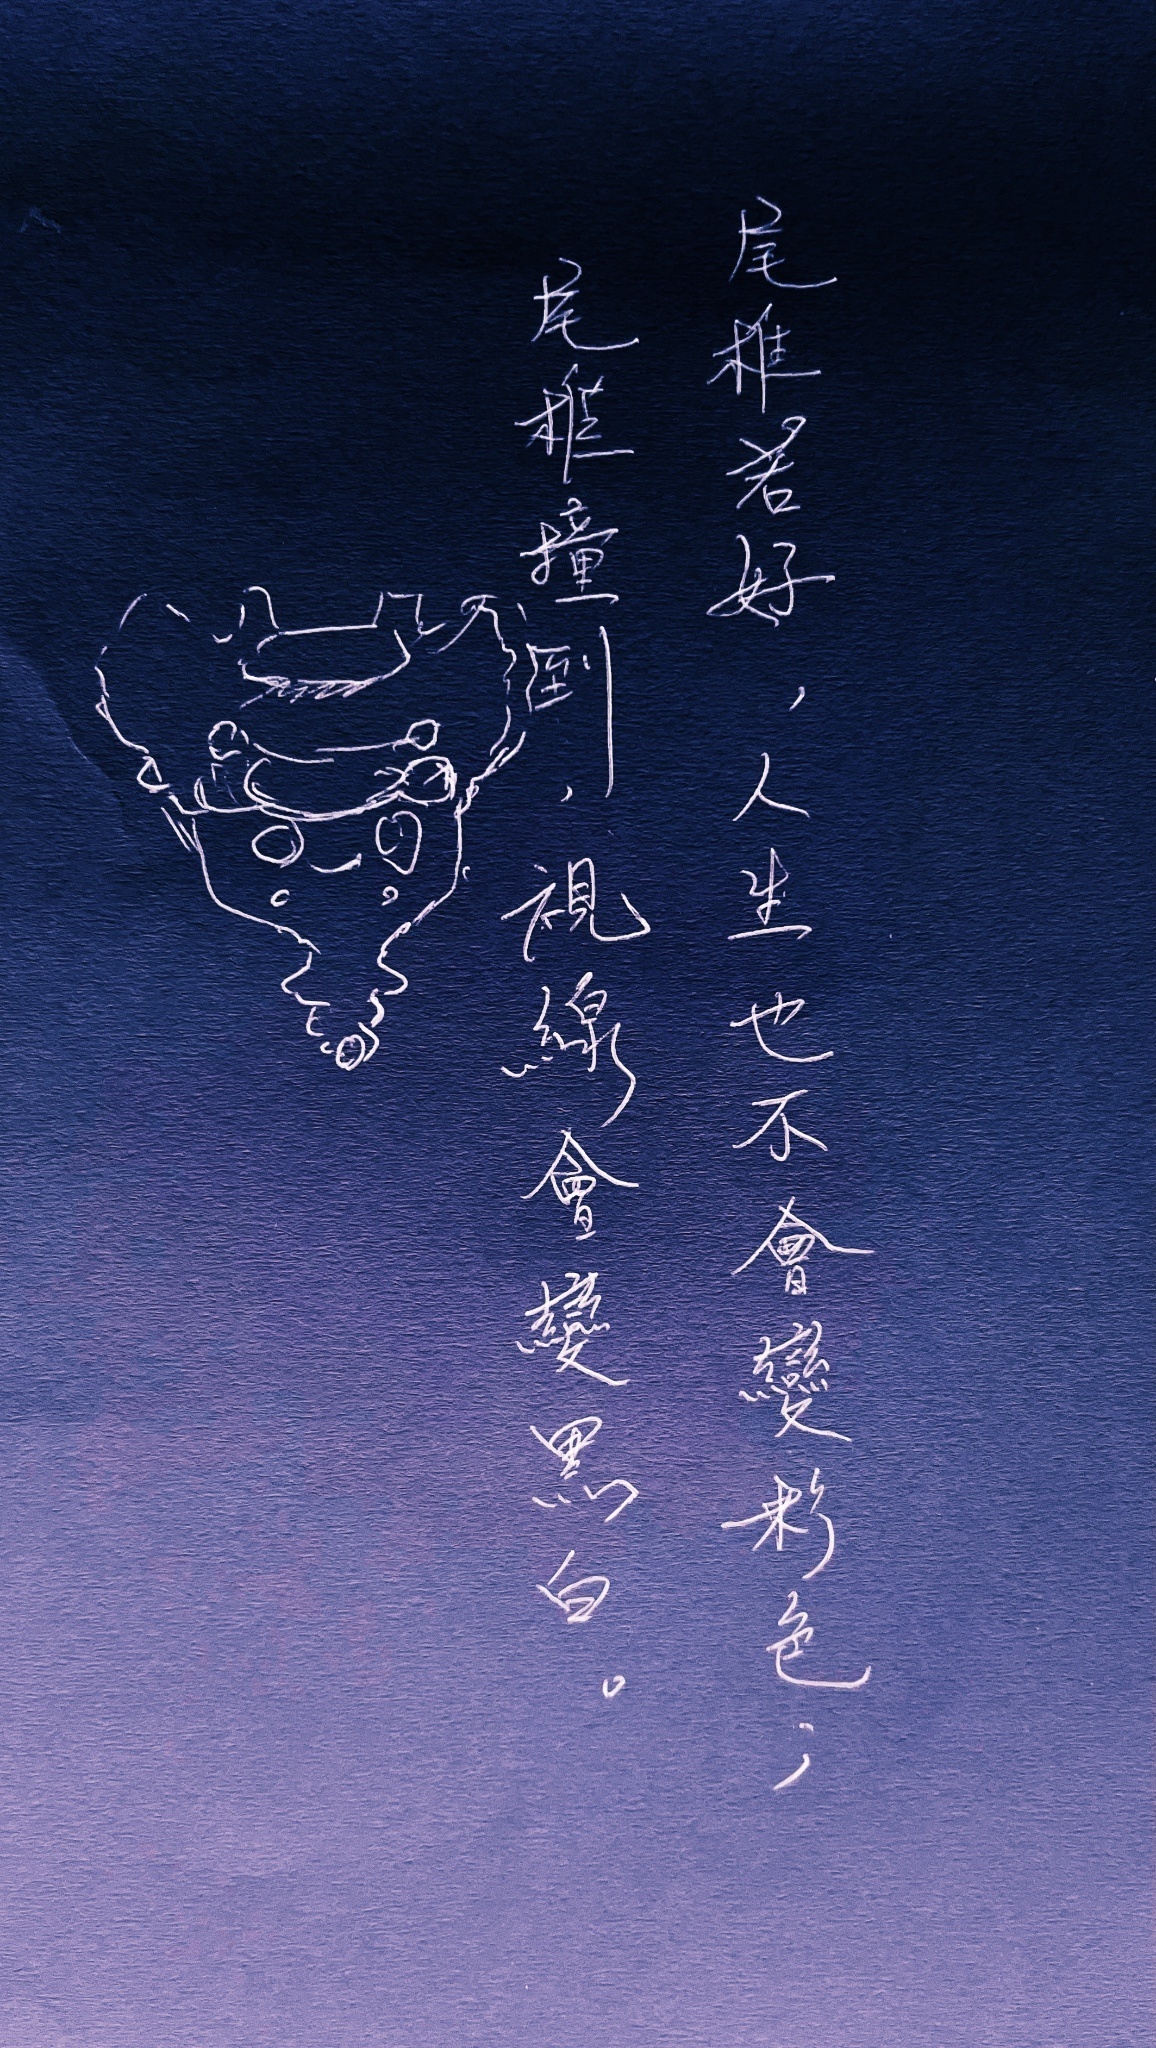 尾椎若好，人生也不會變彩色；
尾椎撞到，視線會變黑白。